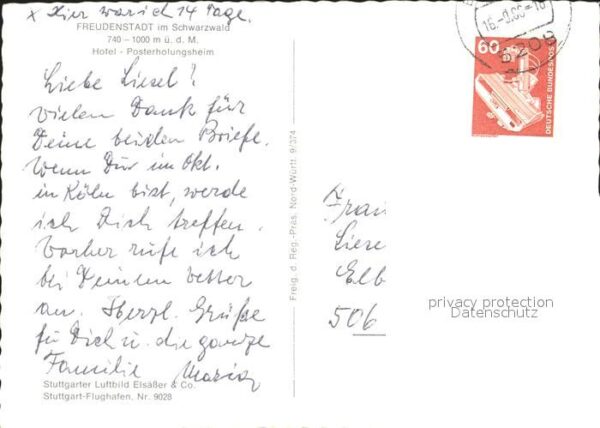 x Hier war ich 14 Tage.
FREUDENSTADT im Schwarzwald
740 – 1000 m ü. d. M.
Hotel - Posterholungsheim
Liebe Liesel!
vielen Dank für
Deine beiden Briefe.
Wenn Du im Okt.
in Köln bist, werde
ich Dich treffen.
Vorher rufe ich
bei Deinem Vetter
an. Herzl. Grüße
für Dich u. die ganze
Familie Maria
Stuttgarter Luftbild Elsäßer & Co.
Stuttgart-Flughafen, Nr. 9028
Freig. d. Reg.-Präs. Nord-Württ. 9/374
5208
60
DEUTSCHE BUNDESPOST
Frau
Liese
Elb
506
privacy protection
Datenschutz